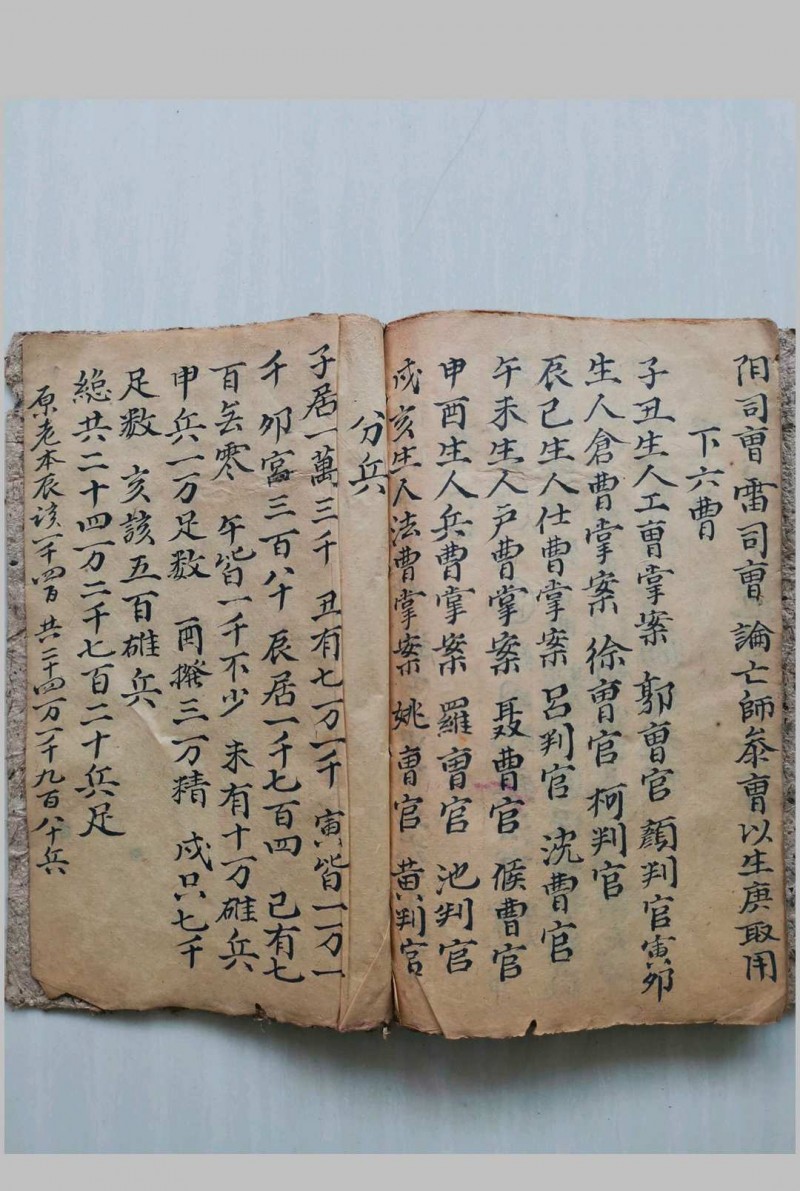 阳司曹 雷司曹 論亡師叅曹以生庚取用
下六曹
子丑生人工曹掌案 郭曹官 顏判官寅夘
生人倉曹掌案 徐曹官 柯判官
辰巳生人仕曹掌案 呂判官 沈曹官
午未生人户曹掌案 聂曹官 候曹官
申酉生人兵曹掌案 羅曹官 池判官
戍亥生人法曹掌案 姚曹官 黄判官
分兵
子居一萬三千 丑有七万一千 寅皆一万一
千 夘富三百八十 辰居一千七百四 己有七
百兵零 午皆一千不少 未有十万雄兵
申兵一万足数 酉撥三万精 戍只七千
足数 亥該五百雄兵
總共二十四万二千七百二十兵足
原老本辰该一千四百 共二十四万一千九百八十兵